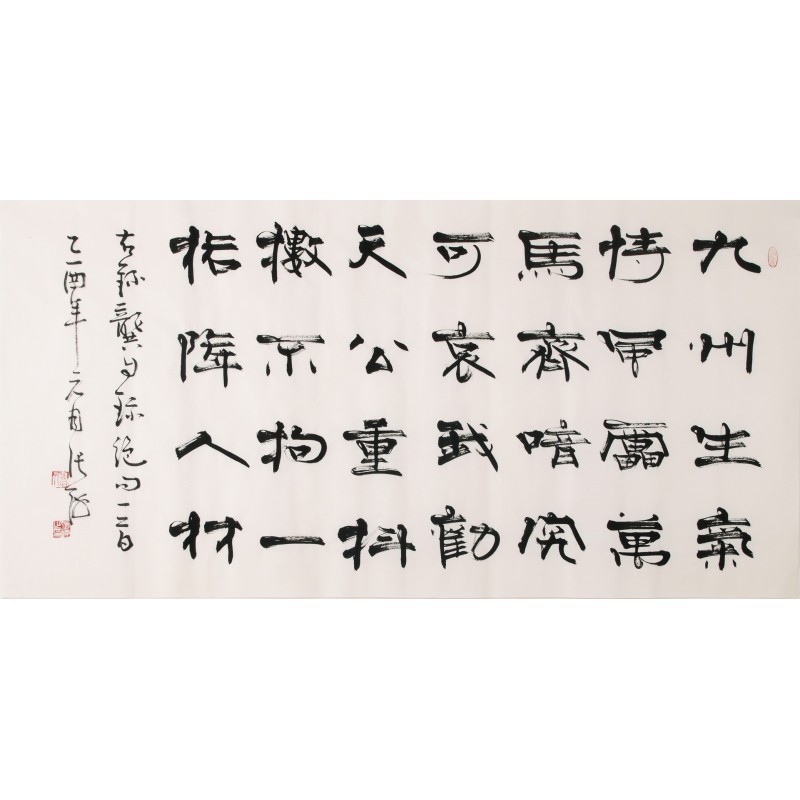 九州生氣
恃風雷萬
馬齊喑究
可哀我勸
天公重抖
擻不拘一
格降人材
右錄龔自珍絕句一首
乙酉年元月